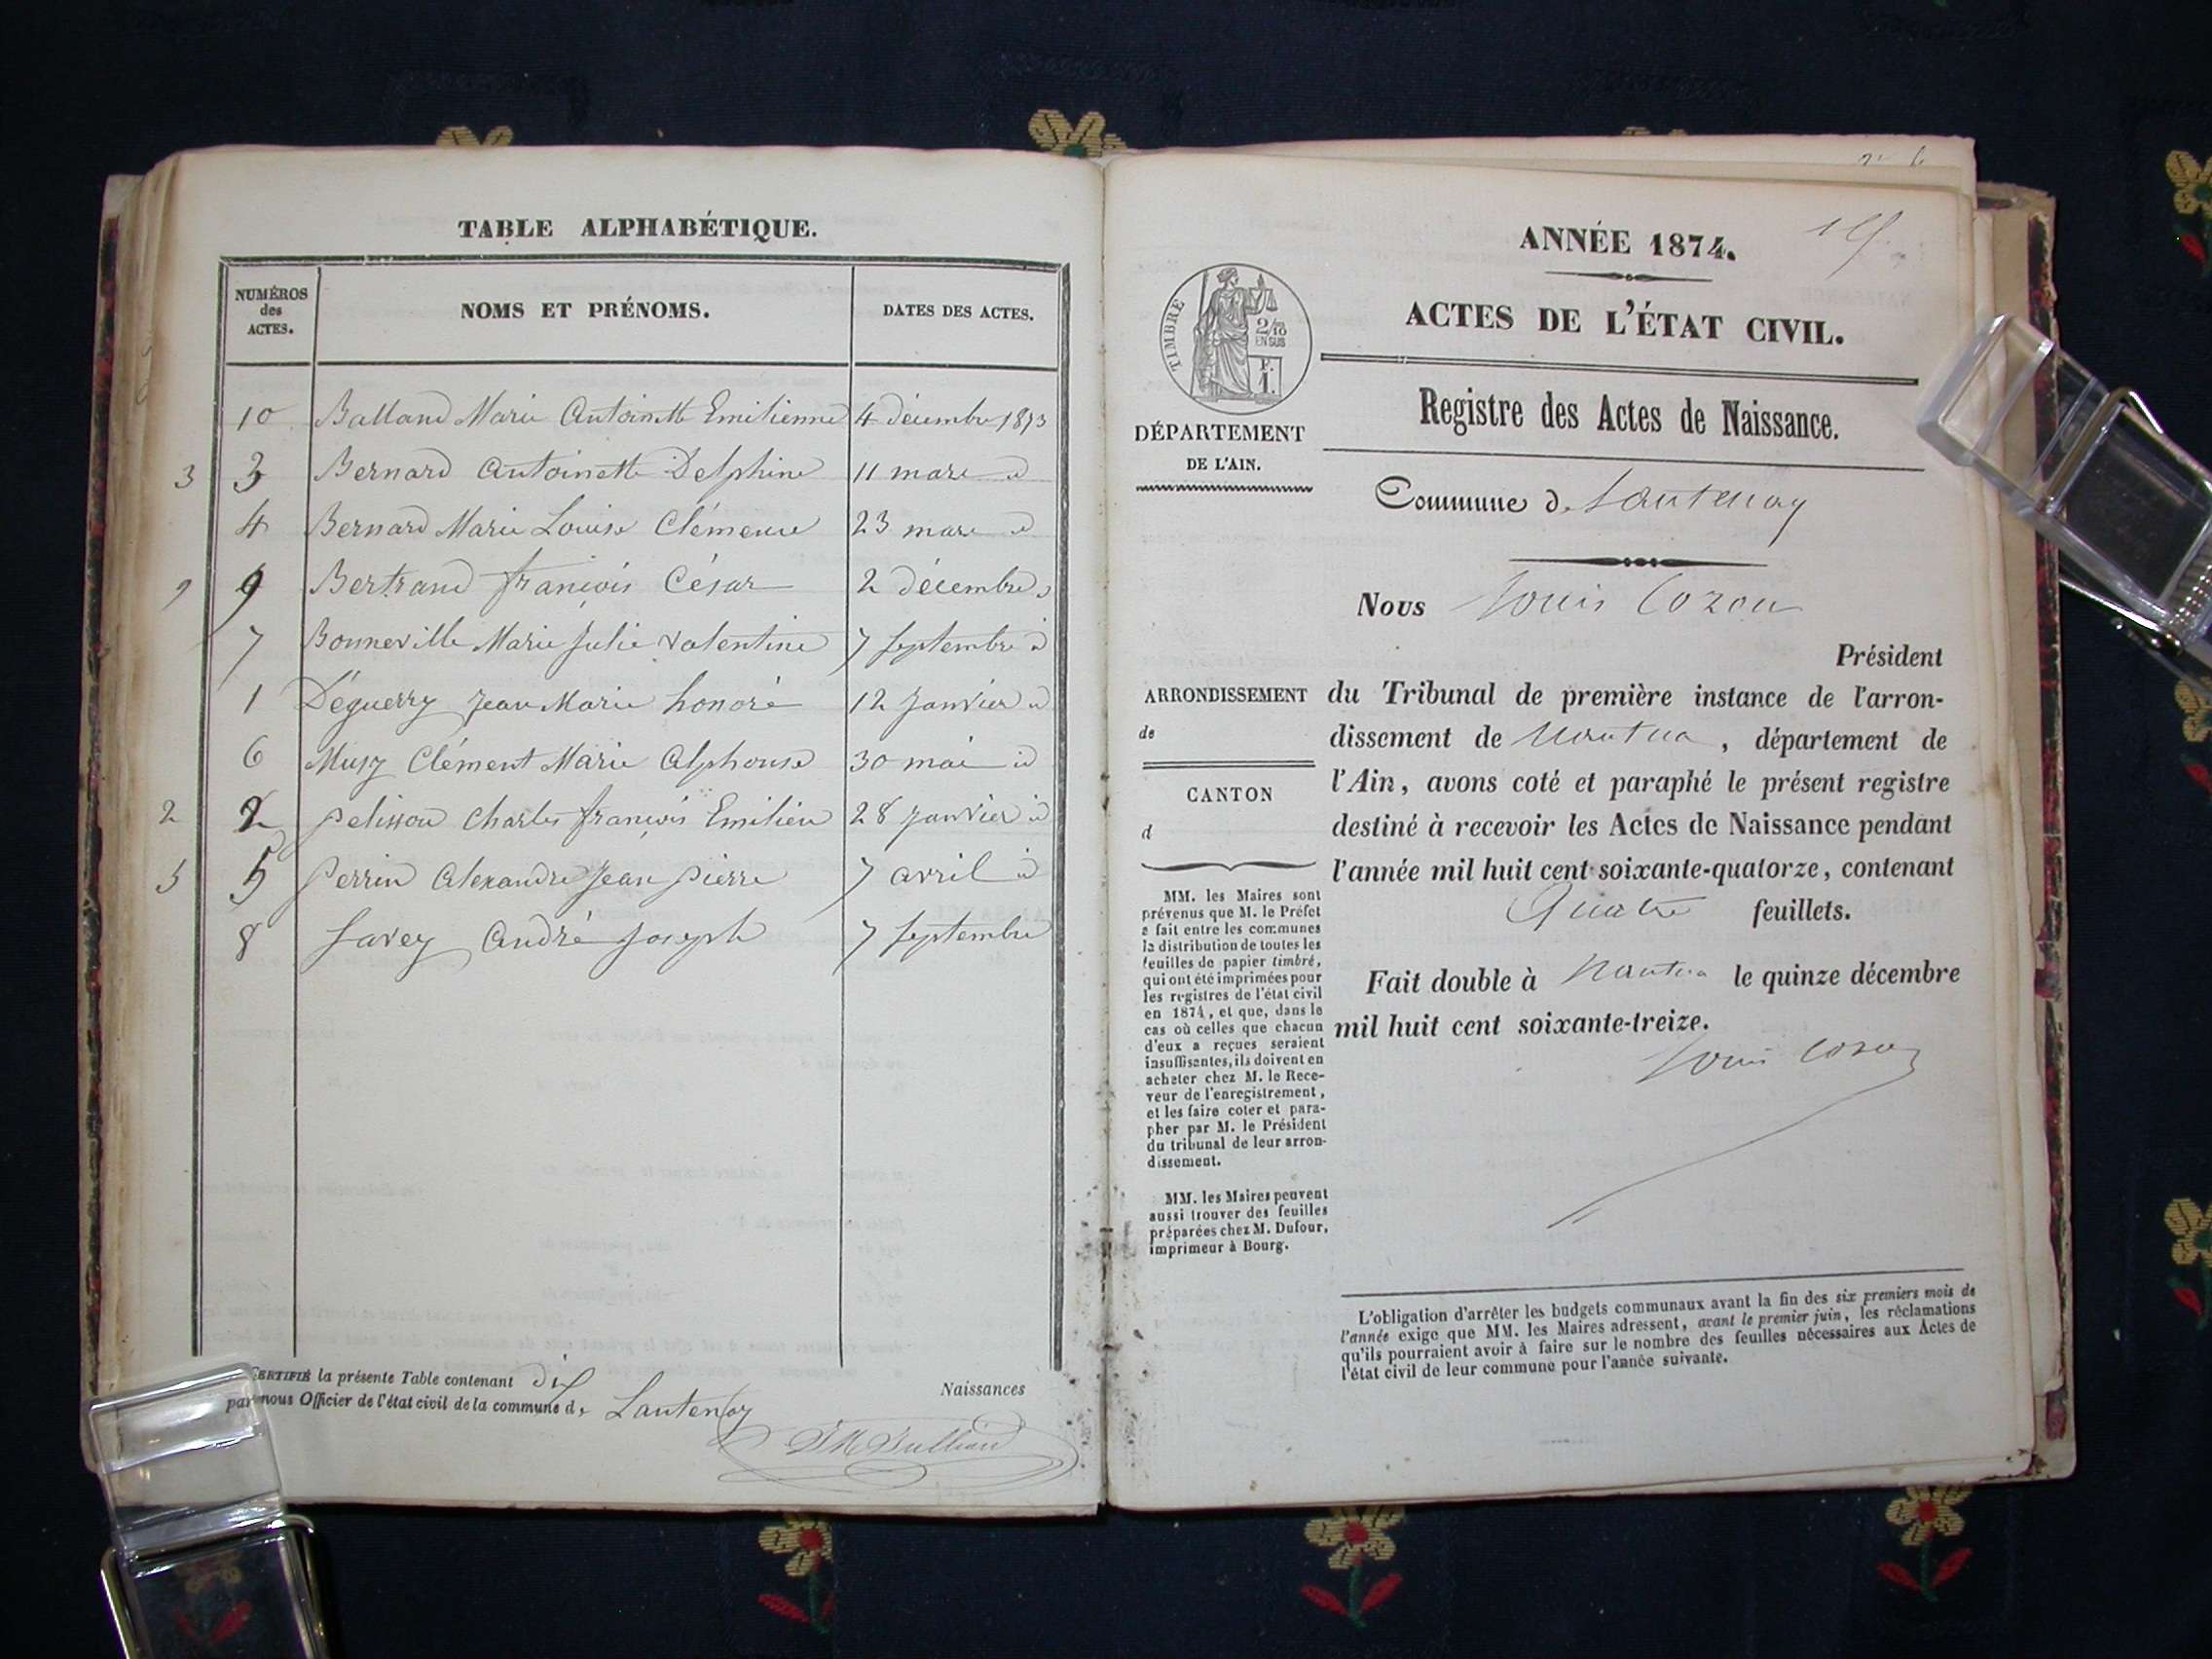 TABLE ALPHABÉTIQUE.
NUMÉROS
des
ACTES.
NOMS ET PRÉNOMS.
DATES DES ACTES.
10 Balland Marie Antoinette Emilienne 4 décembre 1873
3 3 Bernard Antoinette Delphine 11 mars id
4 Bernard Marie Louise Clémence 23 mars id
9 9 Bertrand françois César 2 décembre
7 Bonneville Marie Julie Valentine 7 septembre id
1 Déguerry Jean Marie honoré 12 Janvier id
6 Musy Clément Marie Alphonse 30 mai id
2 2 Pelisson Charles françois Emilien 28 Janvier id
5 5 Perrin Alexandre Jean Pierre 7 avril id
8 Savey André Joseph 7 septembre
CERTIFIÉ la présente Table contenant dix
par nous Officier de l'état civil de la commune de Lantenay
Naissances
ANNÉE 1874.
ACTES DE L'ÉTAT CIVIL.
TIMBRE
2/10
EN SUS
F.
1.
DÉPARTEMENT
DE L'AIN.
Registre des Actes de Naissance.
Commune de Lantenay
Nous Louis Cozon
Président
ARRONDISSEMENT
de
CANTON
d
du Tribunal de première instance de l'arron-
dissement de Nantua, département de
l'Ain, avons coté et paraphé le présent registre
destiné à recevoir les Actes de Naissance pendant
l'année mil huit cent soixante-quatorze, contenant
Quatre feuillets.
Fait double à Nantua le quinze décembre
mil huit cent soixante-treize.
Louis Cozon
MM. les Maires sont
prévenus que M. le Préfet
a fait entre les communes
la distribution de toutes les
feuilles de papier timbré,
qui ont été imprimées pour
les registres de l'état civil
en 1874, et que, dans le
cas où celles que chacun
d'eux a reçues seraient
insuffisantes, ils doivent en
acheter chez M. le Rece-
veur de l'enregistrement,
et les faire coter et para-
pher par M. le Président
du tribunal de leur arron-
dissement.
MM. les Maires peuvent
aussi trouver des feuilles
préparées chez M. Dufour,
imprimeur à Bourg.
L'obligation d'arrêter les budgets communaux avant la fin des six premiers mois de
l'année exige que MM. les Maires adressent, avant le premier juin, les réclamations
qu'ils pourraient avoir à faire sur le nombre des feuilles nécessaires aux Actes de
l'état civil de leur commune pour l'année suivante.